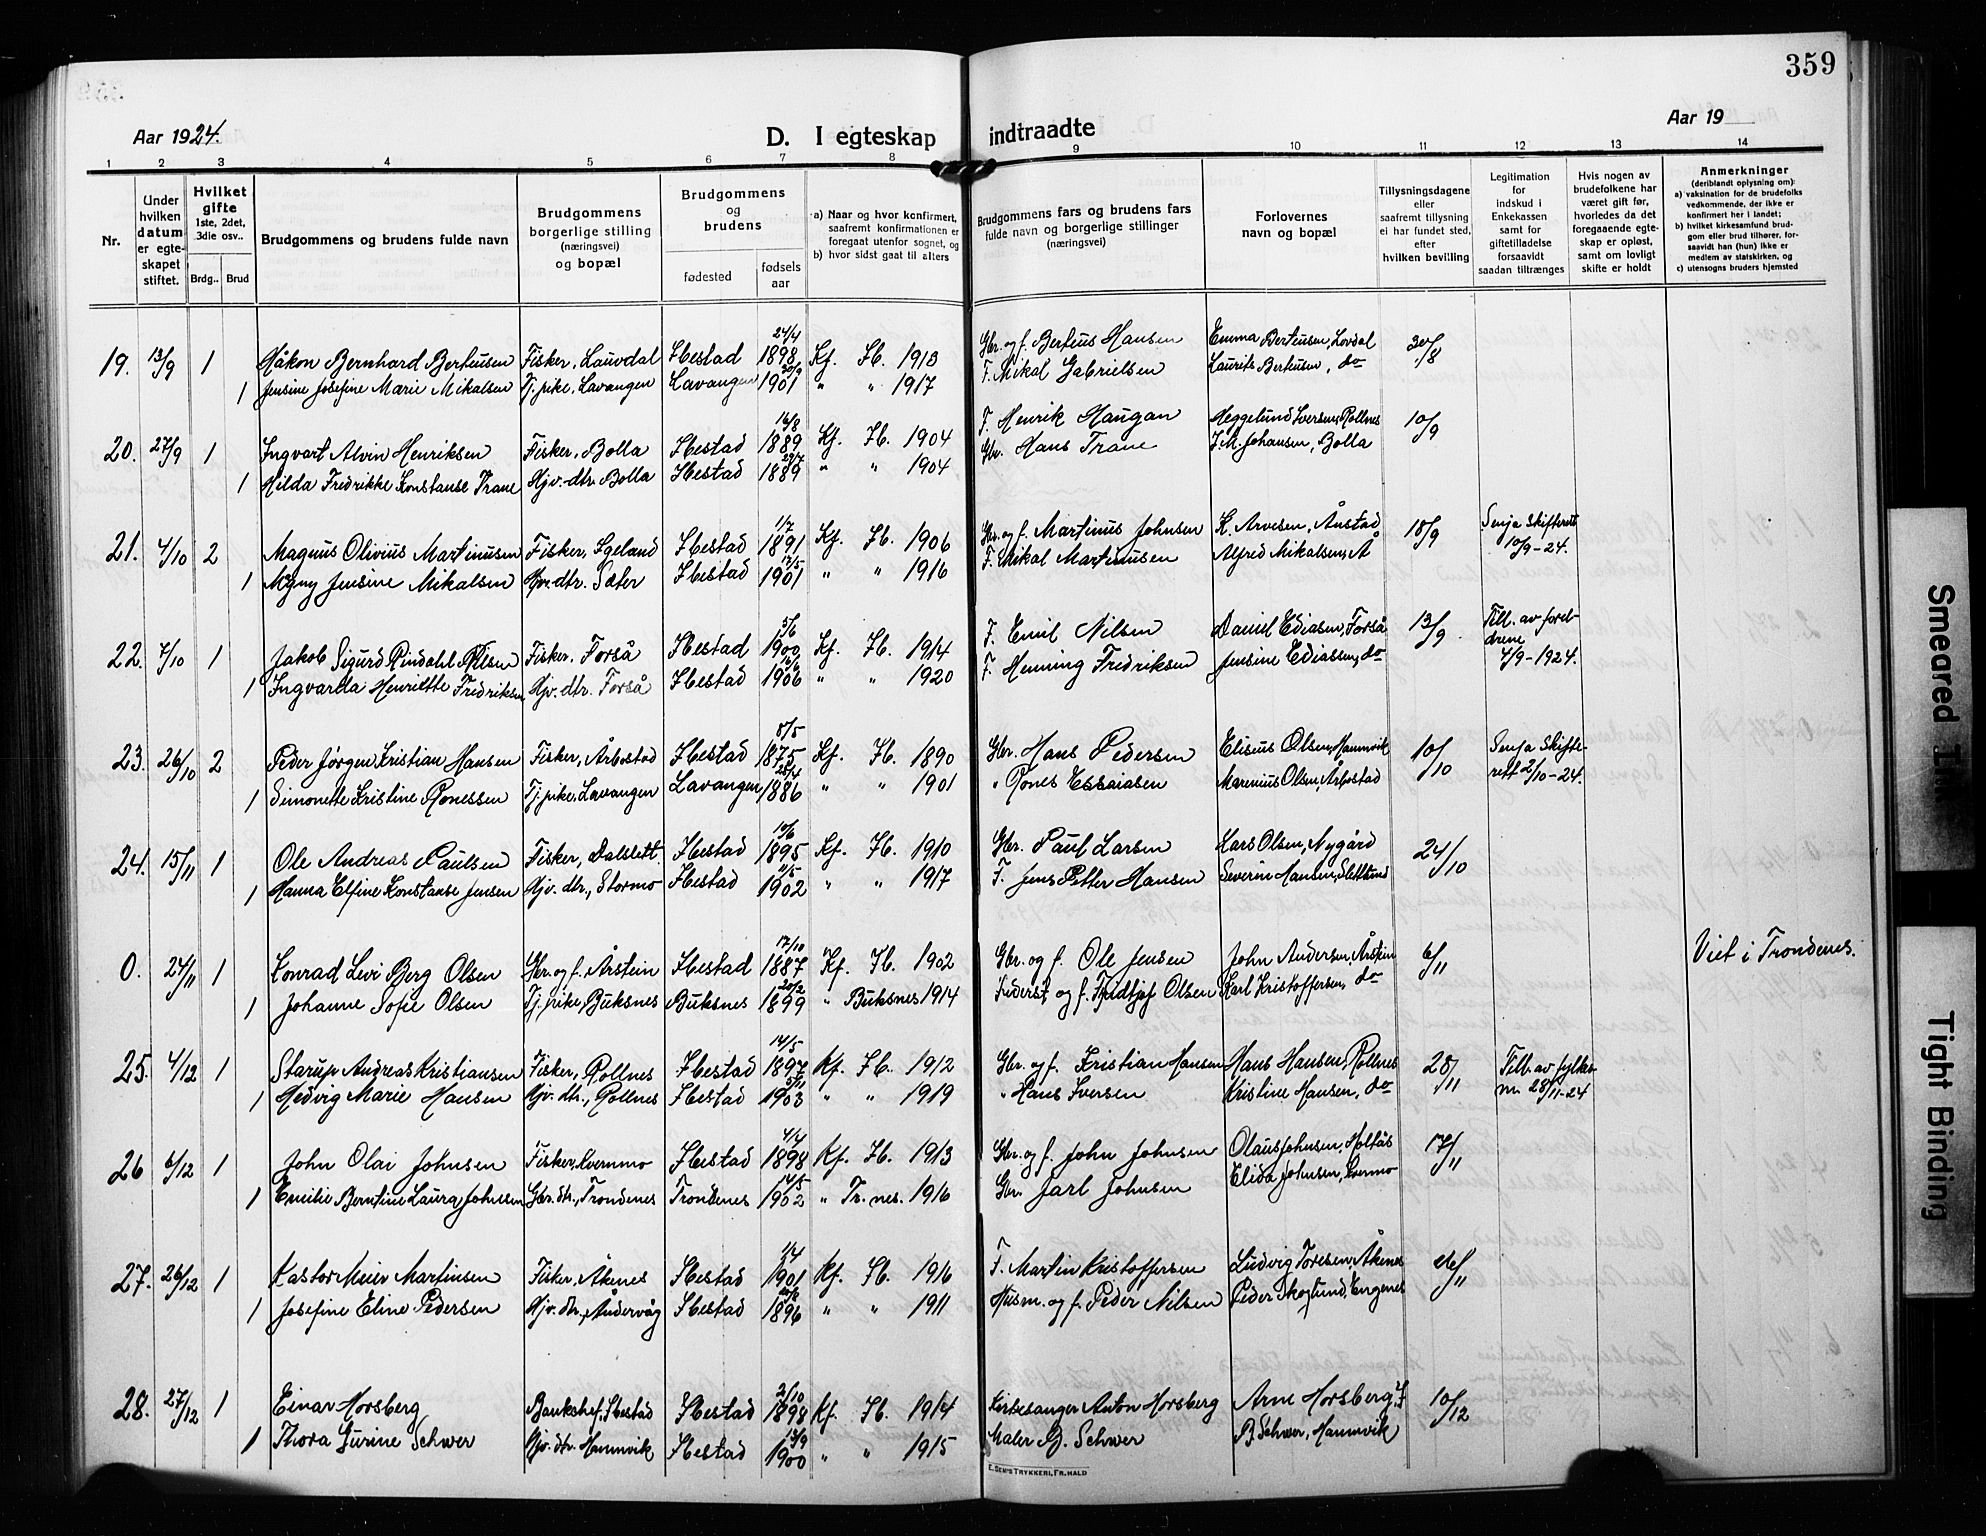 359
Aar 1924.
D. I egteskap indtraadte
Aar 19
1 2 3 4 5 6 7 8 9 10 11 12 13 14
Nr.
Under hvilken datum er egteskapet stiftet.
Hvilket gifte 1ste, 2det, 3die osv..
Brdg.. Brud
Brudgommens og brudens fulde navn
Brudgommens borgerlige stilling (næringsvei) og bopæl
Brudgommens og brudens
fødested
fødsels aar
a) Naar og hvor konfirmert, saafremt konfirmationen er foregaat utenfor sognet, og
b) hvor sidst gaat til alters
Brudgommens fars og brudens fars fulde navn og borgerlige stillinger (næringsvei)
Forlovernes navn og bopæl
Tillysningsdagene eller saafremt tillysning ei har fundet sted, efter hvilken bevilling
Legitimation for indskud i Enkekassen samt for giftetilladelse forsaavidt saadan tiltrænges
Hvis nogen av brudefolkene har været gift før, hvorledes da det foregaaende egteskap er opløst, samt om lovligt skifte er holdt
Anmerkninger
(deriblandt oplysning om):
a) vaksination for de brudefolks vedkommende, der ikke er konfirmert her i landet;
b) hvilket kirkesamfund brudgom eller brud tilhører, forsaavidt han (hun) ikke er medlem av statskirken, og
c) utensogns bruders hjemsted
19. 13/9 1 Håkon Bernhard Berteussen Fisker, Lauvdal Ibestad 24/4 1898 Kf. Ib. 1913 Gbr. og f. Berteus Hansen Emma Berteusen, Lovdal 30/8
1 Jensine Josefine Marie Mikalsen Tj. pike, Lavangen Lavangen 20/9 1901 " " 1917 F. Mikal Gabrielsen Laurits Berteusen, do
20. 27/9 1 Ingvart Alvin Henriksen Fisker, Bolla Ibestad 16/8 1889 Kf. Ib. 1904 F. Henrik Haugan Heggelund Iversen, Rollnes 10/9
1 Hilda Fredrikke Konstanse Trane Hjv.-dtr. Bolla Ibestad 29/7 1889 " " 1904 Gbr. Hans Trane J. M. Johansen, Bolla
21. 4/10 2 Magnus Olivius Martinusen Fisker, Igeland Ibestad 1/7 1891 Kf. Ib. 1906 Gbr. og f. Martinus Johnsen K. Arvesen, Ånstad 18/9 Senja Skifterett 10/9-24.
1 Magny Jensine Mikalsen Hjv.-dtr. Sæter Ibestad 17/5 1901 " " 1916 F. Mikal Martinusen Alfred Mikalsen, Å
22. 7/10 1 Jakob Sigurd Rindahl Nilsen Fisker. Forså Ibestad 5/6 1900 Kf. Ib. 1914 F. Emil Nilsen Daniel Ediasen, Forså 13/9 Till. av foreldrene 4/9-1924.
1 Ingvarda Henriette Fredriksen Hjv. dtr. Forså Ibestad 1906 " " 1920 F. Henning Fredriksen Jensine Ediassen, do
23. 26/10 2 Peder Jørgen Kristian Hansen Fisker, Årbostad Ibestad 8/5 1875 Kf. Ib. 1890 Gbr. Hans Pedersen Eliseus Olsen, Hamnvik 10/10 Senja Skifterett 2/10-24.
1 Simonette Kristine Ronessen Tj. pike, Lavangen Lavangen 28/4 1886 " " 1901 " Rones Essaiasen Marenius Olsen, Årbostad
24. 15/11 1 Ole Andreas Paulsen Fisker, Dalslett. Ibestad 10/6 1895 Kf. Ib. 1910 Gbr. Paul Larsen Lars Olsen, Nygård 24/10
1 Hanna Elfine Konstanse Jensen Hjv. dtr., Stormo Ibestad 11/5 1902 " " 1917 F. Jens Petter Hansen Severin Hansen, Slettlund
0. 24/11 1 Konrad Levi Berg Olsen Gbr. og f., Årstein Ibestad 17/10 1887 Kf. Ib. 1902 Gbr. og f. Ole Jensen John Andersen, Årstein 6/11 Viet i Trondenes.
1 Johanne Sofie Olsen Tj. pike, Buksnes Buksnes 20/2 1899 " Buksnes 1914 Inderst og f. Fridtjof Olsen Karl Kristoffersen, do
25. 4/12 1 Starup Andreas Kristiansen Fisker, Rollnes Ibestad 14/5 1897 Kf. Ib. 1912 Gbr. og f. Kristian Hansen Hans Hansen, Rollnes 28/11 Till. av fylkesm. 28/11-24
1 Hedvig Marie Hansen Hjv. dtr., Rollnes Ibestad 1903 " " 1919 " Hans Iversen Kristine Hansen, do
26 6/12 1 John Olai Johnsen Fisker, Kvernmo Ibestad 4/4 1898 Kf. Ib. 1913 Gbr. og f. John Johnsen Olaus Johnsen, Holtås 17/11
1 Emilie Berntine Laura Johnsen Gbr. dtr., Trondenes Trondenes 14/5 1902 " Tr. nes. 1916 Gbr. Jarl Johnsen Elida Johnsen, Kvernmo
27. 26/12 1 Kastor Meier Martinsen Fisker, Åkenes Ibestad 1/4 1901 Kf. Ib. 1916 F. Martin Kristoffersen Ludvig Toresen, Åkenes 26/11
1 Josefine Eline Pedersen Hjv. dtr., Åndervåg Ibestad 1896 " " 1911 Husm. og f. Peder Nilsen Peder Skoglund, Engenes
28. 27/12 1 Einar Horsberg Bankchef, Ibestad Ibestad 2/10 1898 Kf. Ib. 1914 Kirkesanger Anton Horsberg Arne Horsberg, 10/12
1 Thora Gurine Schwer Hjv. dtr. Hamnvik Ibestad 13/9 1900 " " 1915 Maler B. Schwer B. Schwer, Hamnvik
E. SEM'S TRYKKERI, FR.HALD
Smeared Ink
Tight Binding